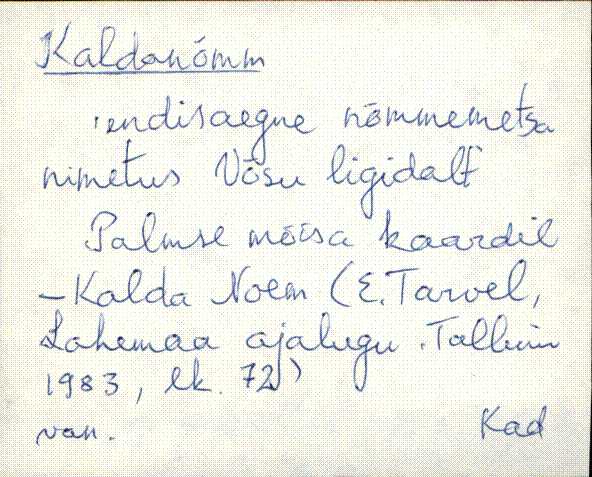 Kaldanõmm
endisaegne nõmmemetsa
nimetus Võsu ligidalt
Palmse mõisa kaardil
– Kalda Noem (E. Tarvel,
Lahemaa ajalugu. Tallinn
1983, lk. 72)
van. Kad